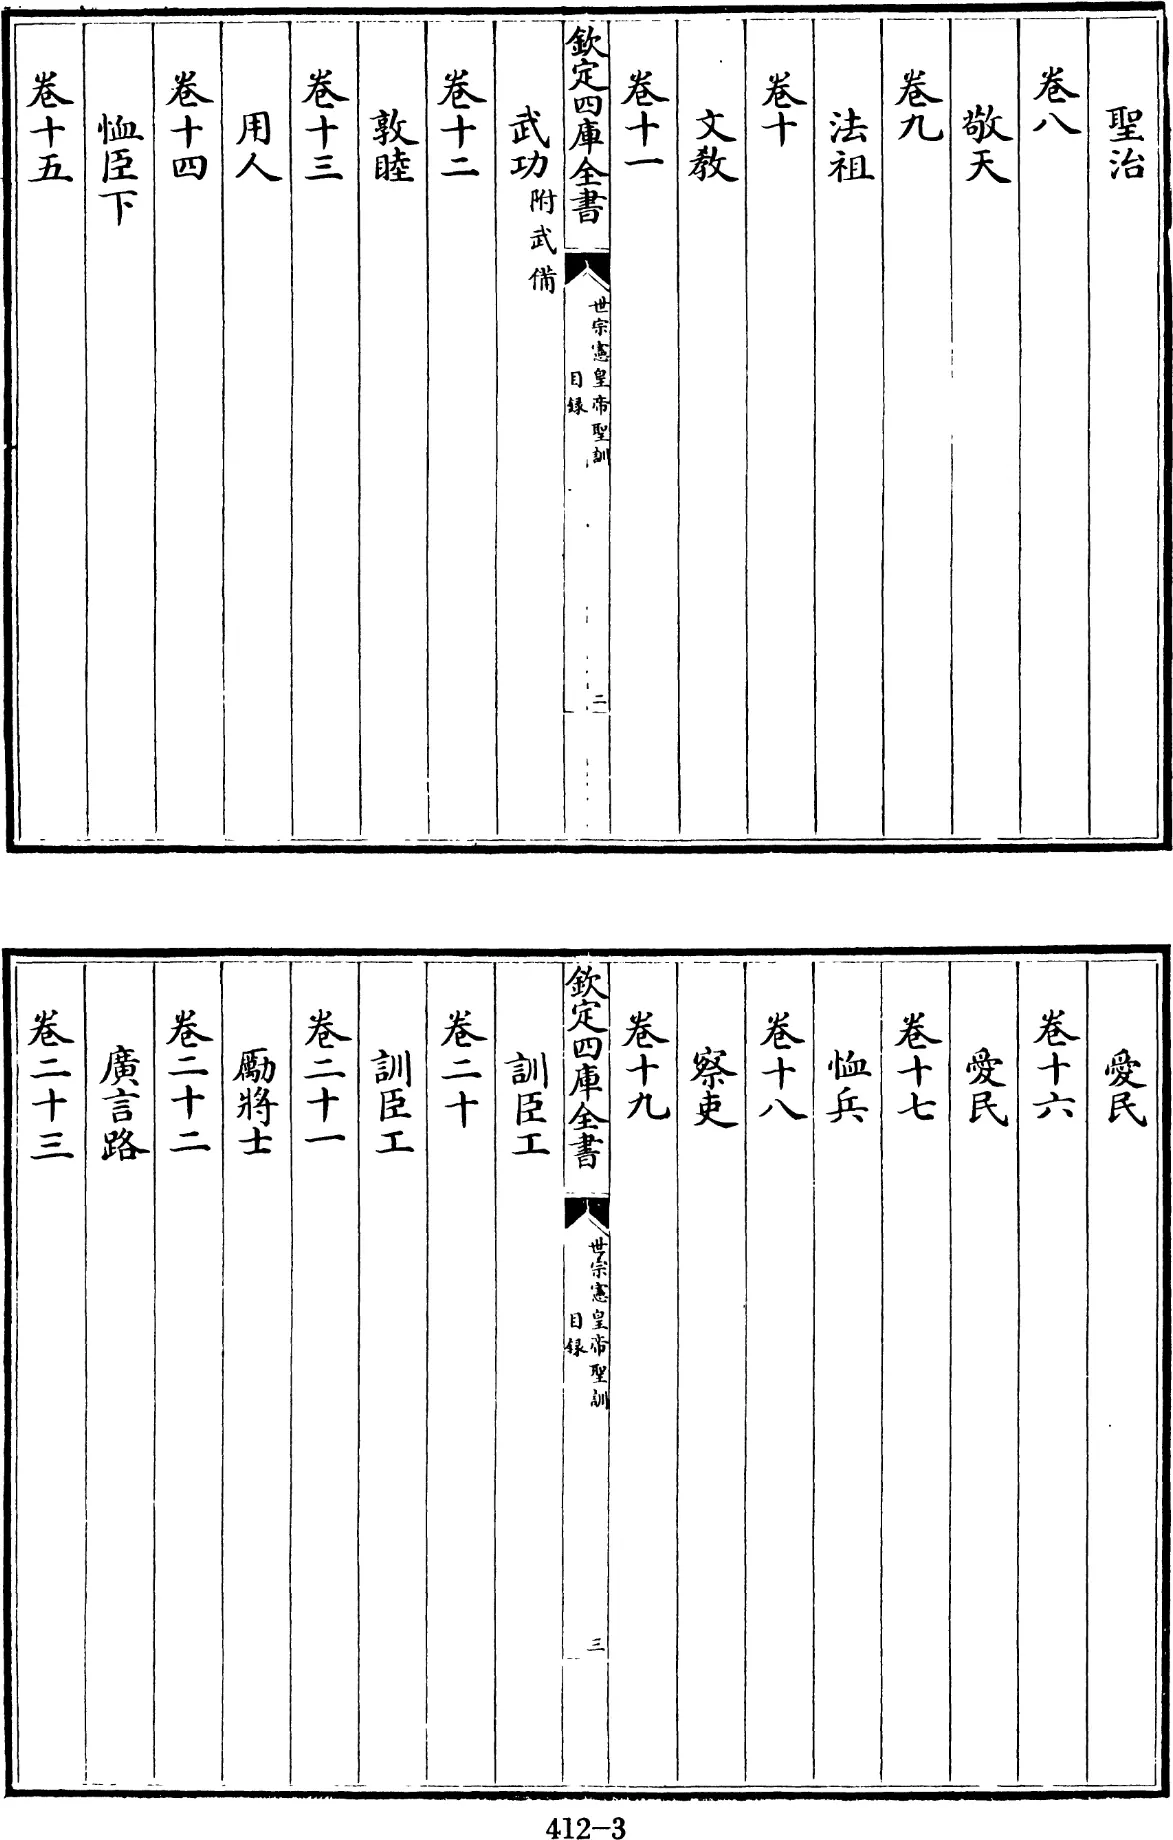 聖治
卷八
敬天
卷九
法祖
卷十
文教
卷十一
欽定四庫全書
世宗憲皇帝聖訓
目録
二
武功附武備
卷十二
敦睦
卷十三
用人
卷十四
恤臣下
卷十五
愛民
卷十六
愛民
卷十七
恤兵
卷十八
察吏
卷十九
欽定四庫全書
世宗憲皇帝聖訓
目録
三
訓臣工
卷二十
訓臣工
卷二十一
勵將士
卷二十二
廣言路
卷二十三
412-3